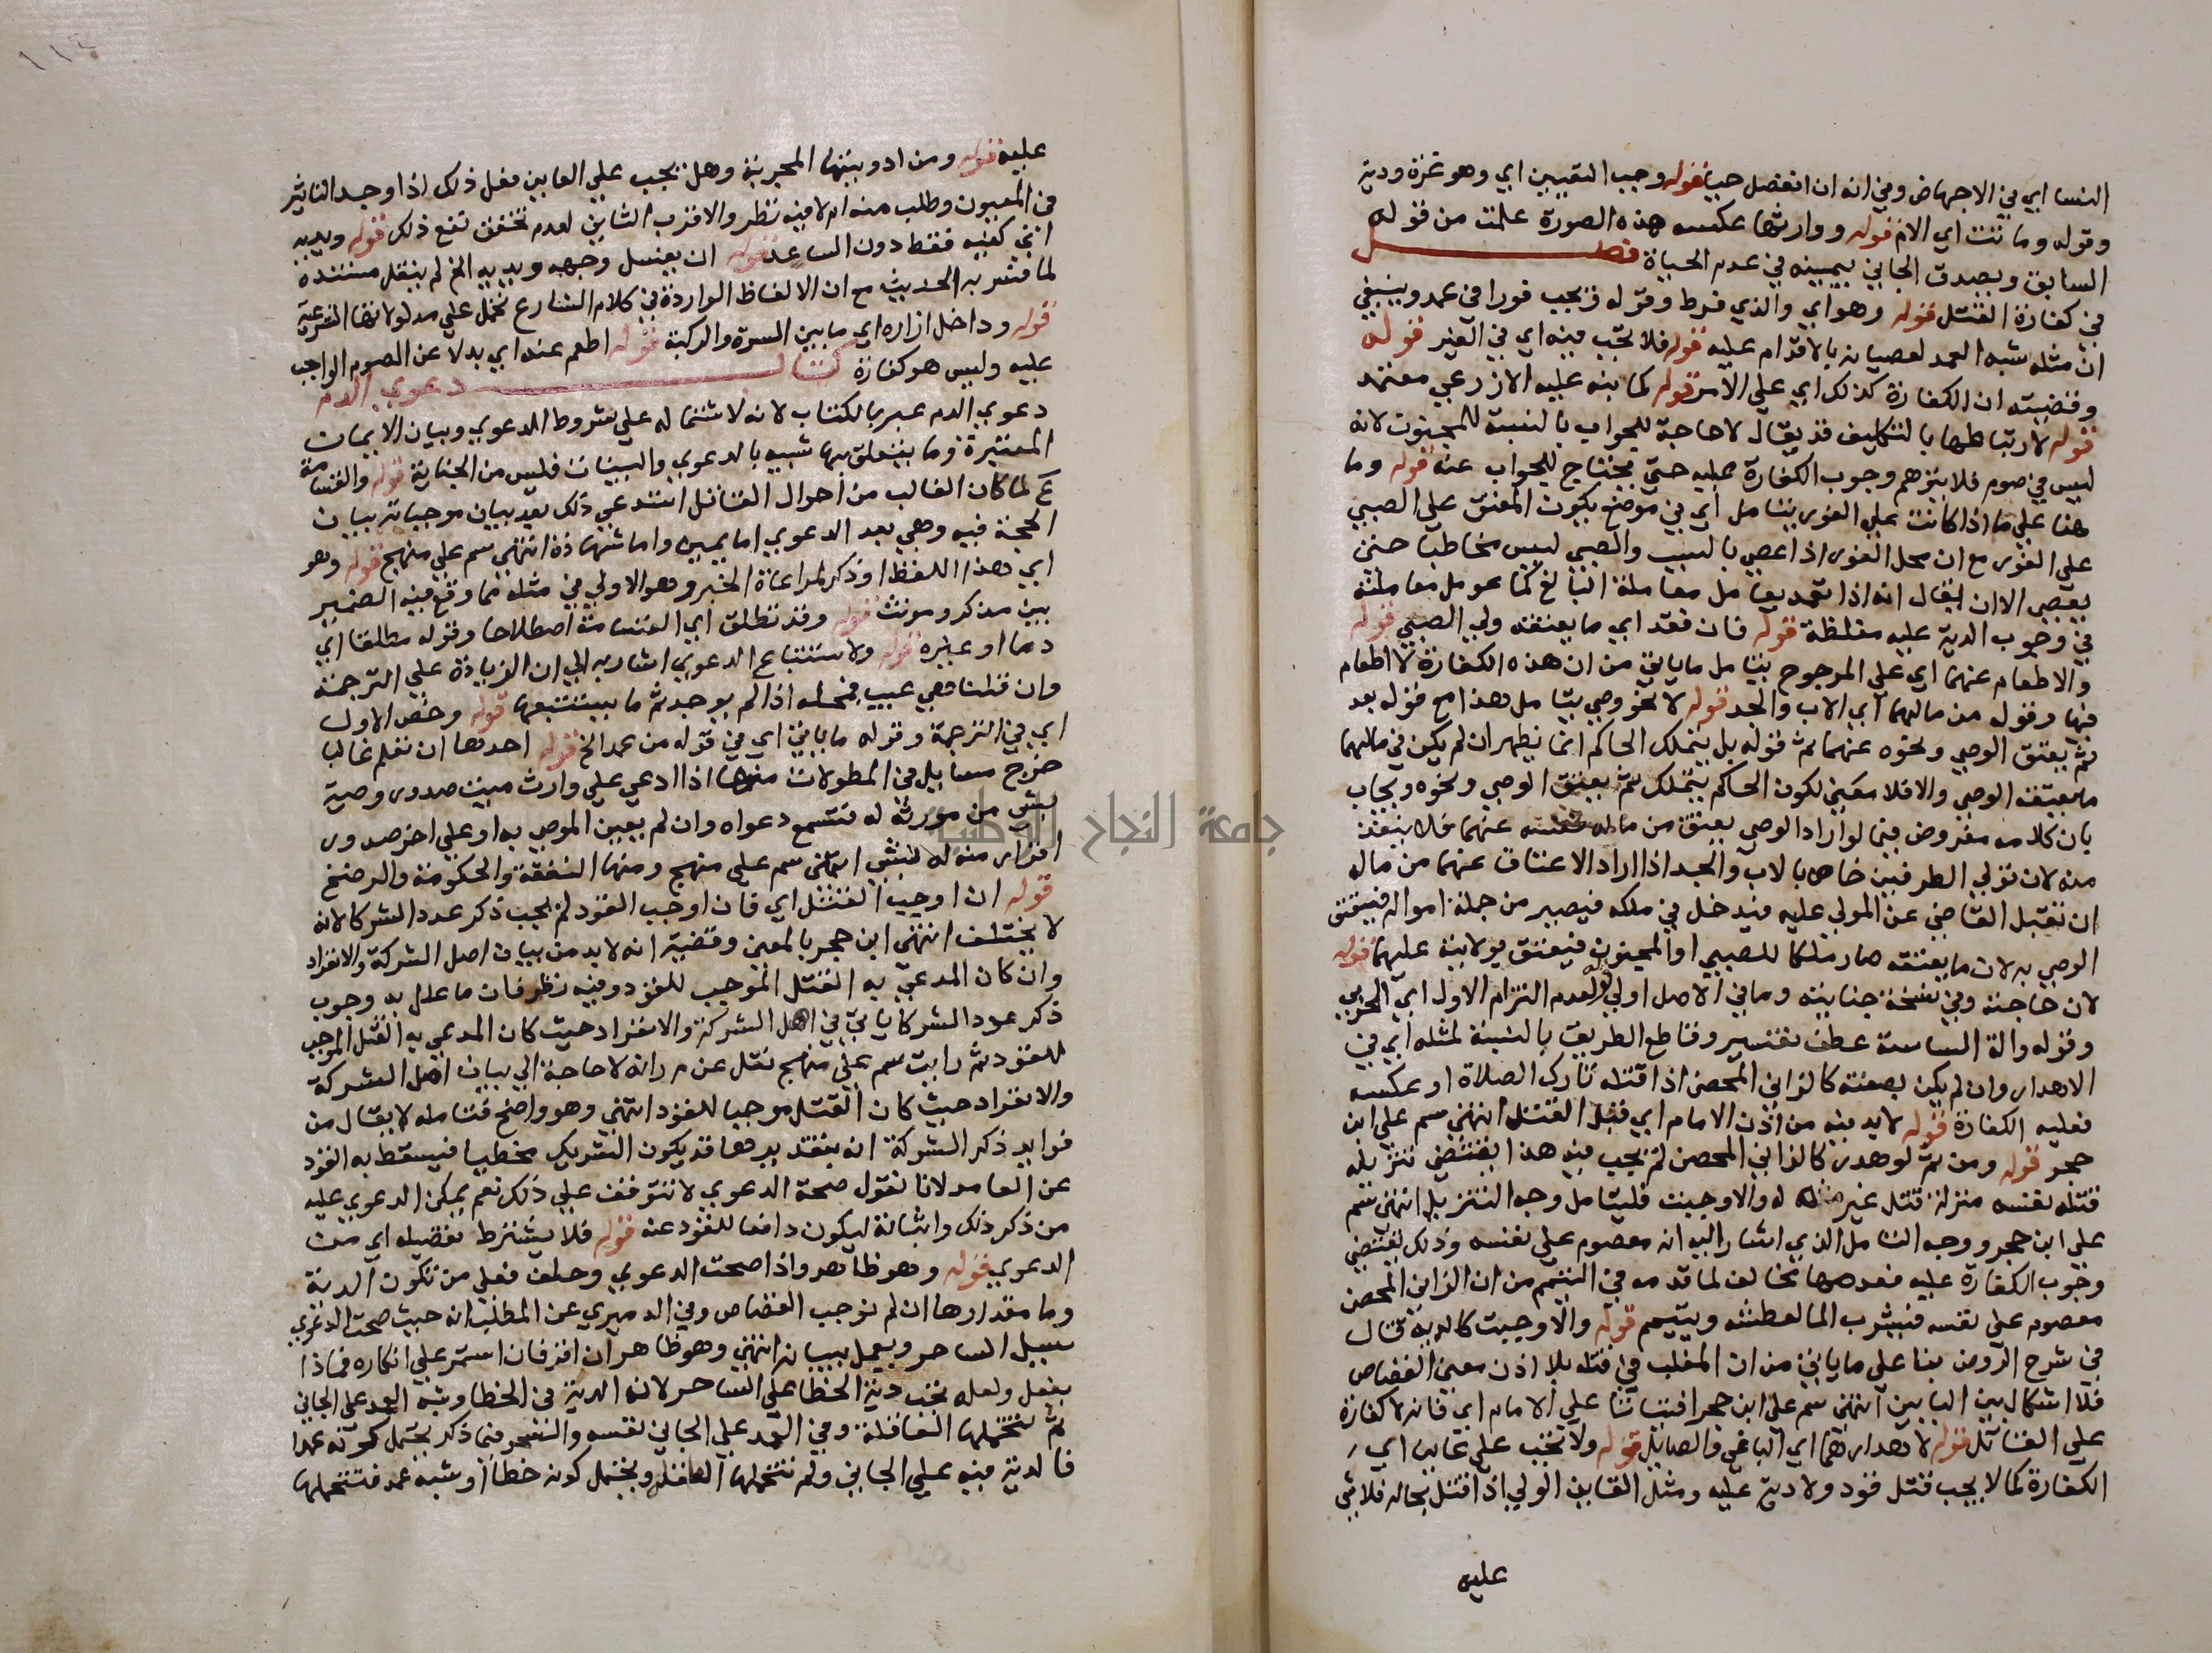 النسا اي في الاجهاض وفي انه ان انفصل حيا قوله وجب التعيين اي وهو غرة ودية
وقوله وماتت اي الام قوله ووارثها عكسه هذه الصورة علمت من قوله
السابق ويصدق الجاني بيمينه في عدم الحياة فصل
في كفارة القتل قوله وهو اي والذي فرط وقوله فيجب فورا في عمد وينبغي
ان مثله شبه العمد لعصيانه بالاقدام عليه قوله فلا تجب فيه اي في الغير قوله
وقضيته ان الكفارة كذلك اي على الامر قوله كما نبه عليه الاذرعي معتمد
قوله لارتباطها بالتكليف قد يقال لا حاجة للجواب بالنسبة للمجنون لانه
ليس في صوم فلا يتوهم وجوب الكفارة عليه حتى يحتاج للجواب عنه قوله وما
هنا على ما اذا كانت على الفور يتامل اي في موضع يكون المعتق على الصبي
على الفور مع ان محل الفور اذا عصي بالسبب والصبي ليس مخاطبا حتى
يعصي الا ان يقال انه اذا تعمد يعامل معاملة البالغ كما عومل معاملته
في وجوب الدية عليه مغلظة قوله فان فقد اي ما يعتقه ولي الصبي قوله
والاطعام عنهما اي على المرجوح يتامل ما ياتي من ان هذه الكفارة لا اطعام
فيها وقوله من مالهما اي الاب والجد قوله لا نحو وصي يتامل هذا مع قوله بعد
ثم يعتق الوصي ونحوه عنهما ثم قوله بل يتملك الحاكم انما يظهر ان لم يكن في مالهما
ما يعتقه الوصي والا فلا معني لكون الحاكم يتملك ثم يعتق الوصي ونحوه ويجاب
بان كلامه مفروض فيما لو اراد الوصي يعتق من ماله نفسه عنهما فلا ينفذ
منه لان تولي الطرفين خاص بالاب والجد اذا اراد الاعتاق عنهما من ماله
ان تقبل القاضي عن المولي عليه فيدخل في ملكه فيصير من جملة امواله فيعتق
الوصي به لان ما يعتقه صار ملكا للصبي او المجنون فيعتق بولايته عليهما قوله
لان خاجنه وفي نسخة جنايته وما في الاصل اولي قوله لعدم التزام الاول اي الحربي
وقوله والة الساسة عطف تفسير وقاطع الطريق بالنسبة لمثله اي في
الاهدار وان لم يكن بصفته كالزاني المحصن اذا قتله تارك الصلاة او عكسه
فعليه الكفارة قوله لا بد فيه من اذن الامام اي قبل القتل انتهي سم على ابن
حجر قوله ومن ثم لو هدر كالزاني المحصن لم يجب فيه هذا يقتضي تنزيله
قتله نفسه منزلة قتل غير مثله له والا وجبت فليتامل وجه التنزيل انتهي سم
على ابن حجر ووجه التامل الذي اشار اليه انه معصوم على نفسه وذلك يقتضي
وجوب الكفارة عليه فعدمها مخالف لما قدمه في التيمم من ان الزاني المحصن
معصوم على نفسه فيشرب الما لعطشه ويتيمم قوله والا وجبت كالدية قال
في شرح الروض بنا على ما ياتي من ان المغلب في قتله بلا اذن معني القصاص
فلا اشكال بين البابين انتهي سم على ابن حجر افتياتا على الامام اي فانه لا كفارة
على القاتل قوله لاهدارهما اي الباغي والصايل قوله ولا تجب على عاين اي
الكفارة كما لا يجب قتل قود ولا دية عليه ومثل القاين الولي اذا قتل بحاله فلا شي
عليه
١١٤
عليه قوله ومن ادويتها المجربة وهل يجب على العاين فعل ذلك اذا وجد التاثير
في المعيون وطلب منه ام لا فيه نظر والاقرب الثاني لعدم تحقق نفع ذلك قوله ويديه
اي كفيه فقط دون الساعد قوله ان يغسل وجهه ويديه الخ لم ينقل مستنده
لما فسر به الحديث مع ان الالفاظ الواردة في كلام الشارع تحمل على مدلولاتها الشرعية
قوله وداخل ازاره اي ما بين السرة والركبة قوله اطعم عنه اي بدلا عن الصوم الواجب
عليه وليس هو كفارة كتاب دعوي الدم
دعوي الدم عبر بالكتاب لانه لاشتماله على شروط الدعوي وبيان الايمان
المعتبرة وما يتعلق بها شبيه بالدعوي والبينات فليس من الجناية قوله والقسامة
ع لما كان الغالب من احوال القاتل استدعي ذلك بعد بيان موجباته ببيان
الحجة فيه وهي بعد الدعوي اما يمين واما شهادة انتهي سم على منهج قوله وهو
اي هذا اللفظ او ذكر لمراعاة الخبر وهو الاولي في مثله مما وقع فيه الضمير
بين مذكر ومونث قوله وقد تطلق اي القسامة اصطلاحا وقوله مطلقا اي
دما او غيره قوله ولاستتباع الدعوي اشار به الي ان الزيادة على الترجمة
وان قلنا هي عيب فمحله اذا لم يوجد ثم ما يستتبعها قوله وخص الاول
اي في الترجمة وقوله ما ياتي اي في قوله من عمد الخ قوله احدها ان تعلم غالبا
خرج مسايل في المطولات منها اذا ادعي على وارث ميت صدور وصية
بشي من مورثه له فتسمع دعواه وان لم يعين الموصي به او على اخر صدور
اقرار منه له بشي انتهي سم على منهج ومنها النفقة والحكومة والرضخ
قوله ان اوجب القتل اي فان اوجب القود لم يجب ذكر عدد الشركا لانه
لا يختلف انتهي ابن حجر بالمعني وقضيته انه لا بد من بيان اصل الشركة والانفراد
وان كان المدعي به القتل الموجب للقود وفيه نظر فان ما علل به وجوب
ذكر عدد الشركا ياتي في اصل الشركة والانفراد حيث كان المدعي به القتل الموجب
للقود ثم رايت سم على منهج نقل عن م ر انه لا حاجة الي بيان اصل الشركة
والانفراد حيث كان القتل موجبا للقود انتهي وهو واضح فتامله لا يقال من
فوايد ذكر الشركة انه بتقديرها قد يكون الشريك مخطيا فيسقط به القود
عن العامد لانا نقول صحة الدعوي لا تتوقف على ذلك نعم يمكن الدعوي عليه
من ذكر ذلك واثباته ليكون دافعا للقود عنه قوله فلا يشترط تفصيله اي من
الدعوي قوله وهو ظاهر واذا صحت الدعوي وحلف فعلي من تكون الدية
وما مقدارها ان لم توجب القصاص وفي الدميري عن المطلب انه حيث صحت الدعوي
سيل الساحر ويعمل ببيانه انتهي وهو ظاهر ان اقر فان استمر على انكاره فماذا
يفعل ولعله تجب دية الخطا على الساحر لانه الدية في الخطا وشبه العمد على الجاني
ثم تتحملها العاقلة وفي العمد على الجاني نفسه والسحر فيما ذكر يحتمل كونه عمدا
فالدية فيه على الجاني ولم تتحملها العاقلة ويحتمل كونه خطا او شبه عمد فتتحملها
جامعة النجاح الوطنية